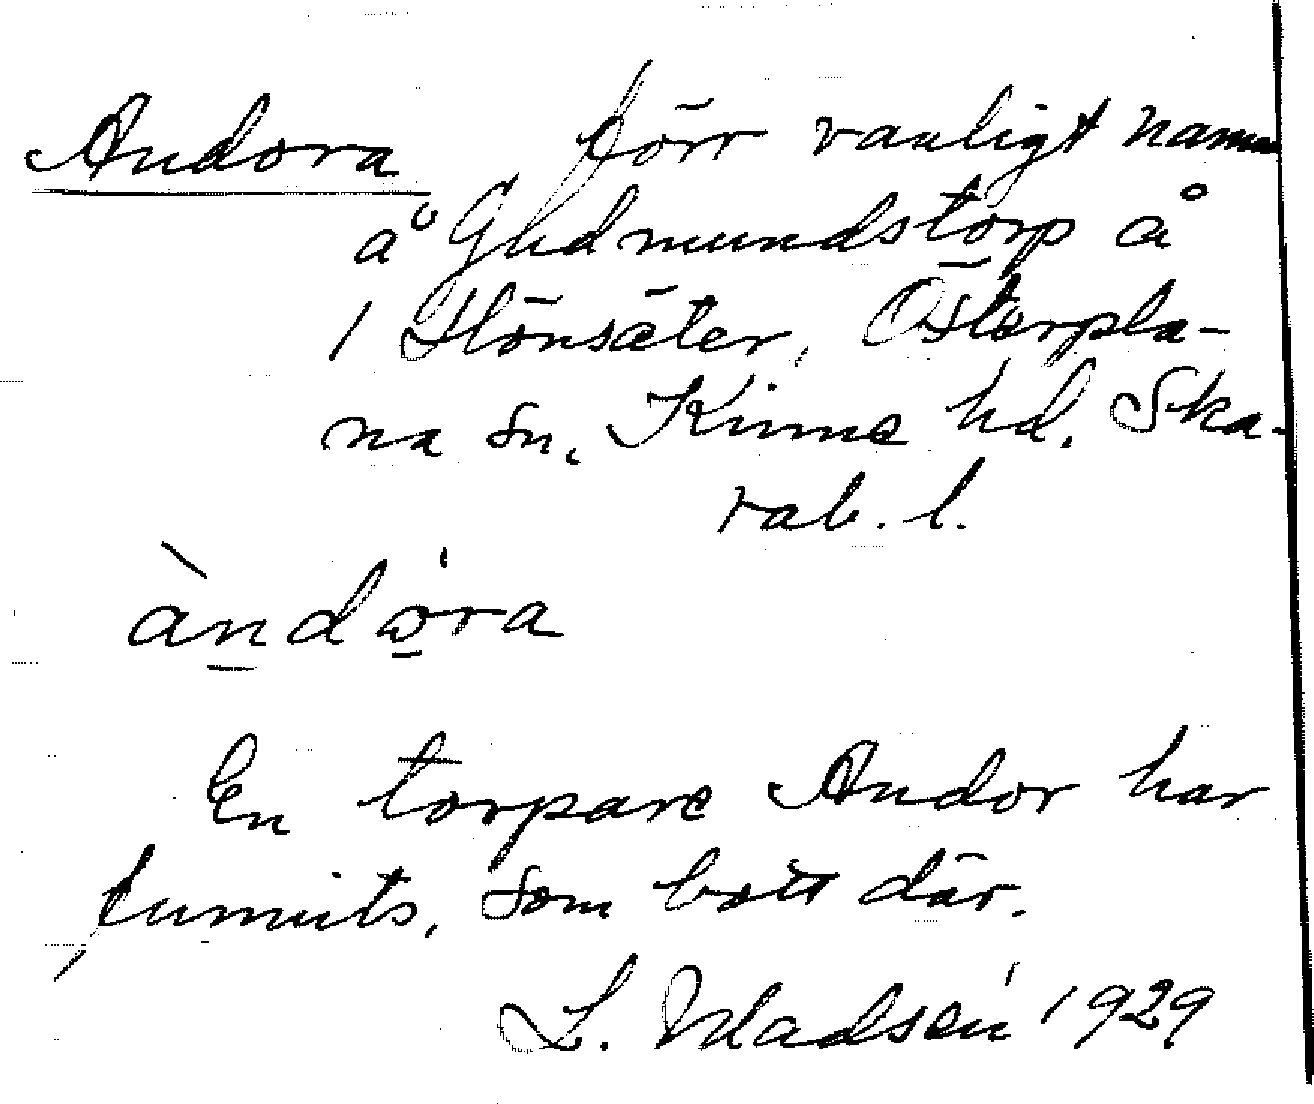 Andora förr vanligt namn
å Gudmundstorp å
1 Hönsäter, Österpla-
na sn, Kinne hd. Ska-
rab. l.
àndóra
En torpare Andor har
funnits, som bott där.
L. Madsén 1929